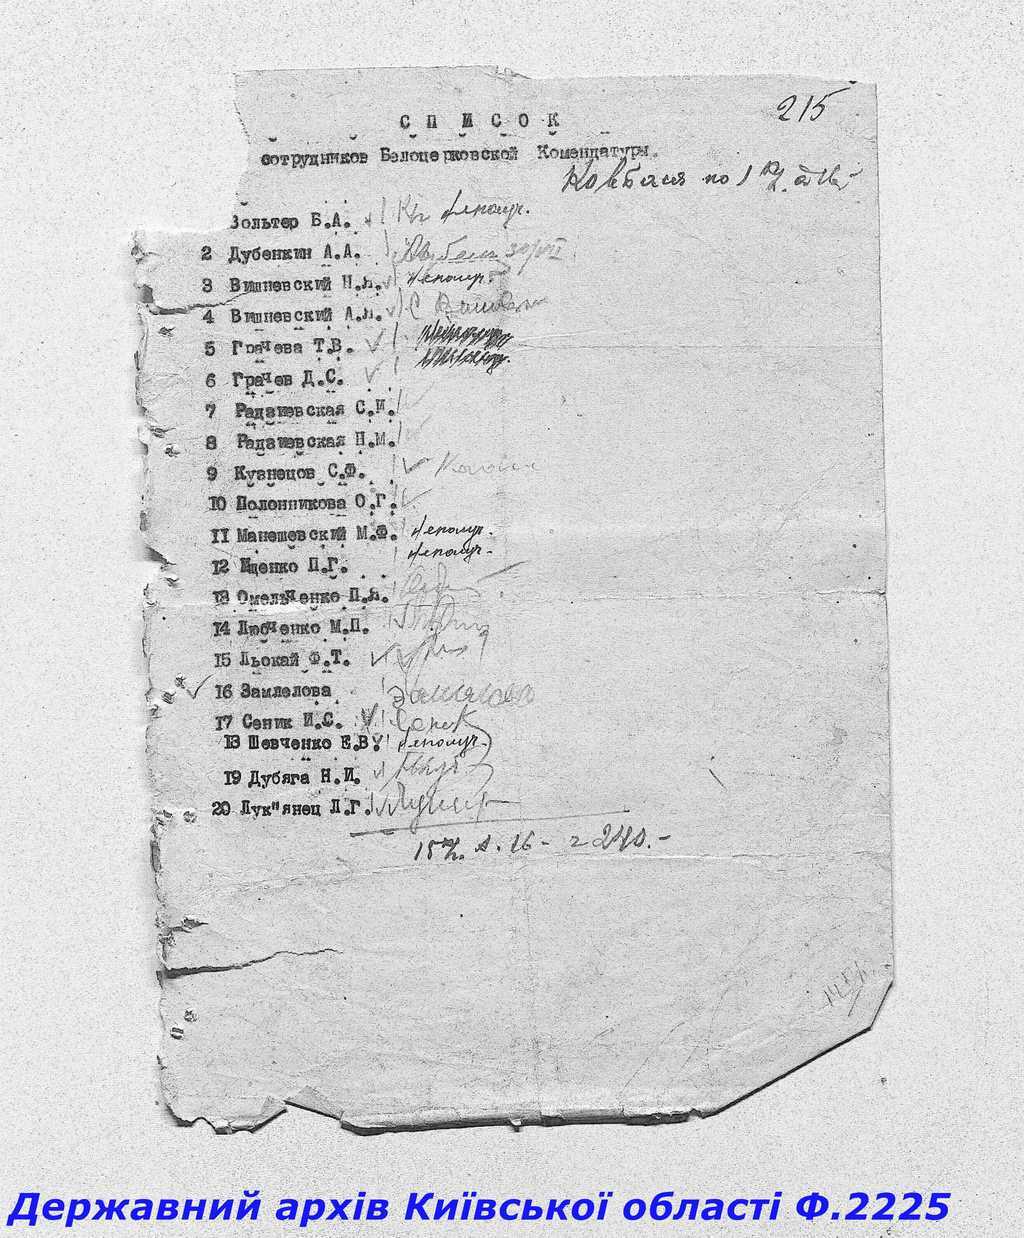 215
СПИСОК
сотрудников Белоцерковской Комендатуры.
Ковбаса по 1
Вольтер Б.А. неполуч.
2 Дубенкин А.А.
3 Вишневский Н.Я. неполуч.
4 Вишневский А.Л.
5 Грачева Т.В.
6 Грачев Д.С.
7 Радзиевская С.И.
8 Радзиевская Н.М.
9 Кузнецов С.Ф.
10 Полонникова О.Г.
11 Манешевский М.Ф. неполуч.
12 Ищенко П.Г. неполуч.
13 Омельченко П.Я.
14 Любченко М.П.
15 Льокай Ф.Т.
16 Замлелова
17 Сеник И.С. Сеник
18 Шевченко Е.В. неполуч.
19 Дубяга Н.И.
20 Лук"янец Л.Г.
240.-
Державний архів Київської області Ф.2225